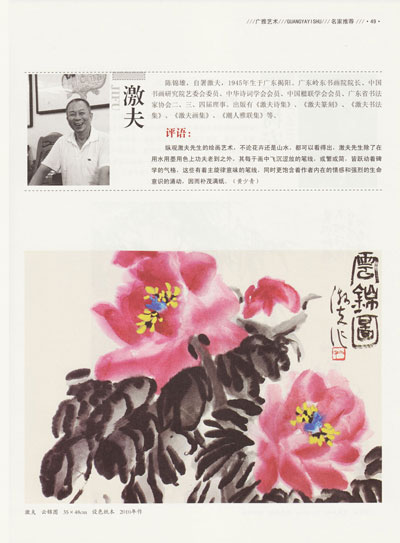 ///广雅艺术///GUANGYAYISHU///名家推荐///·49·
激夫
JIFU
陈锦雄，自署激夫，1945年生于广东揭阳。广东岭东书画院院长、中国
书画研究院艺委会委员、中华诗词学会会员、中国楹联学会会员、广东省书法
家协会二、三、四届理事。出版有《激夫诗集》、《激夫篆刻》、《激夫书法
集》、《激夫画集》、《潮人雅联集》等。
评语：
纵观激夫先生的绘画艺术，不论花卉还是山水，都可以看得出，激夫先生除了在
用水用墨用色上功夫老到之外，其每于画中飞沉涩放的笔线，或繁或简，皆跃动着碑
学的气格，这些有着主旋律意味的笔线，同时更饱含着作者内在的情感和强烈的生命
意识的涌动，因而朴茂满纸。（黄少青）
雲錦圖
激夫作
激夫 云锦图 35×46cm 设色纸本 2010年作